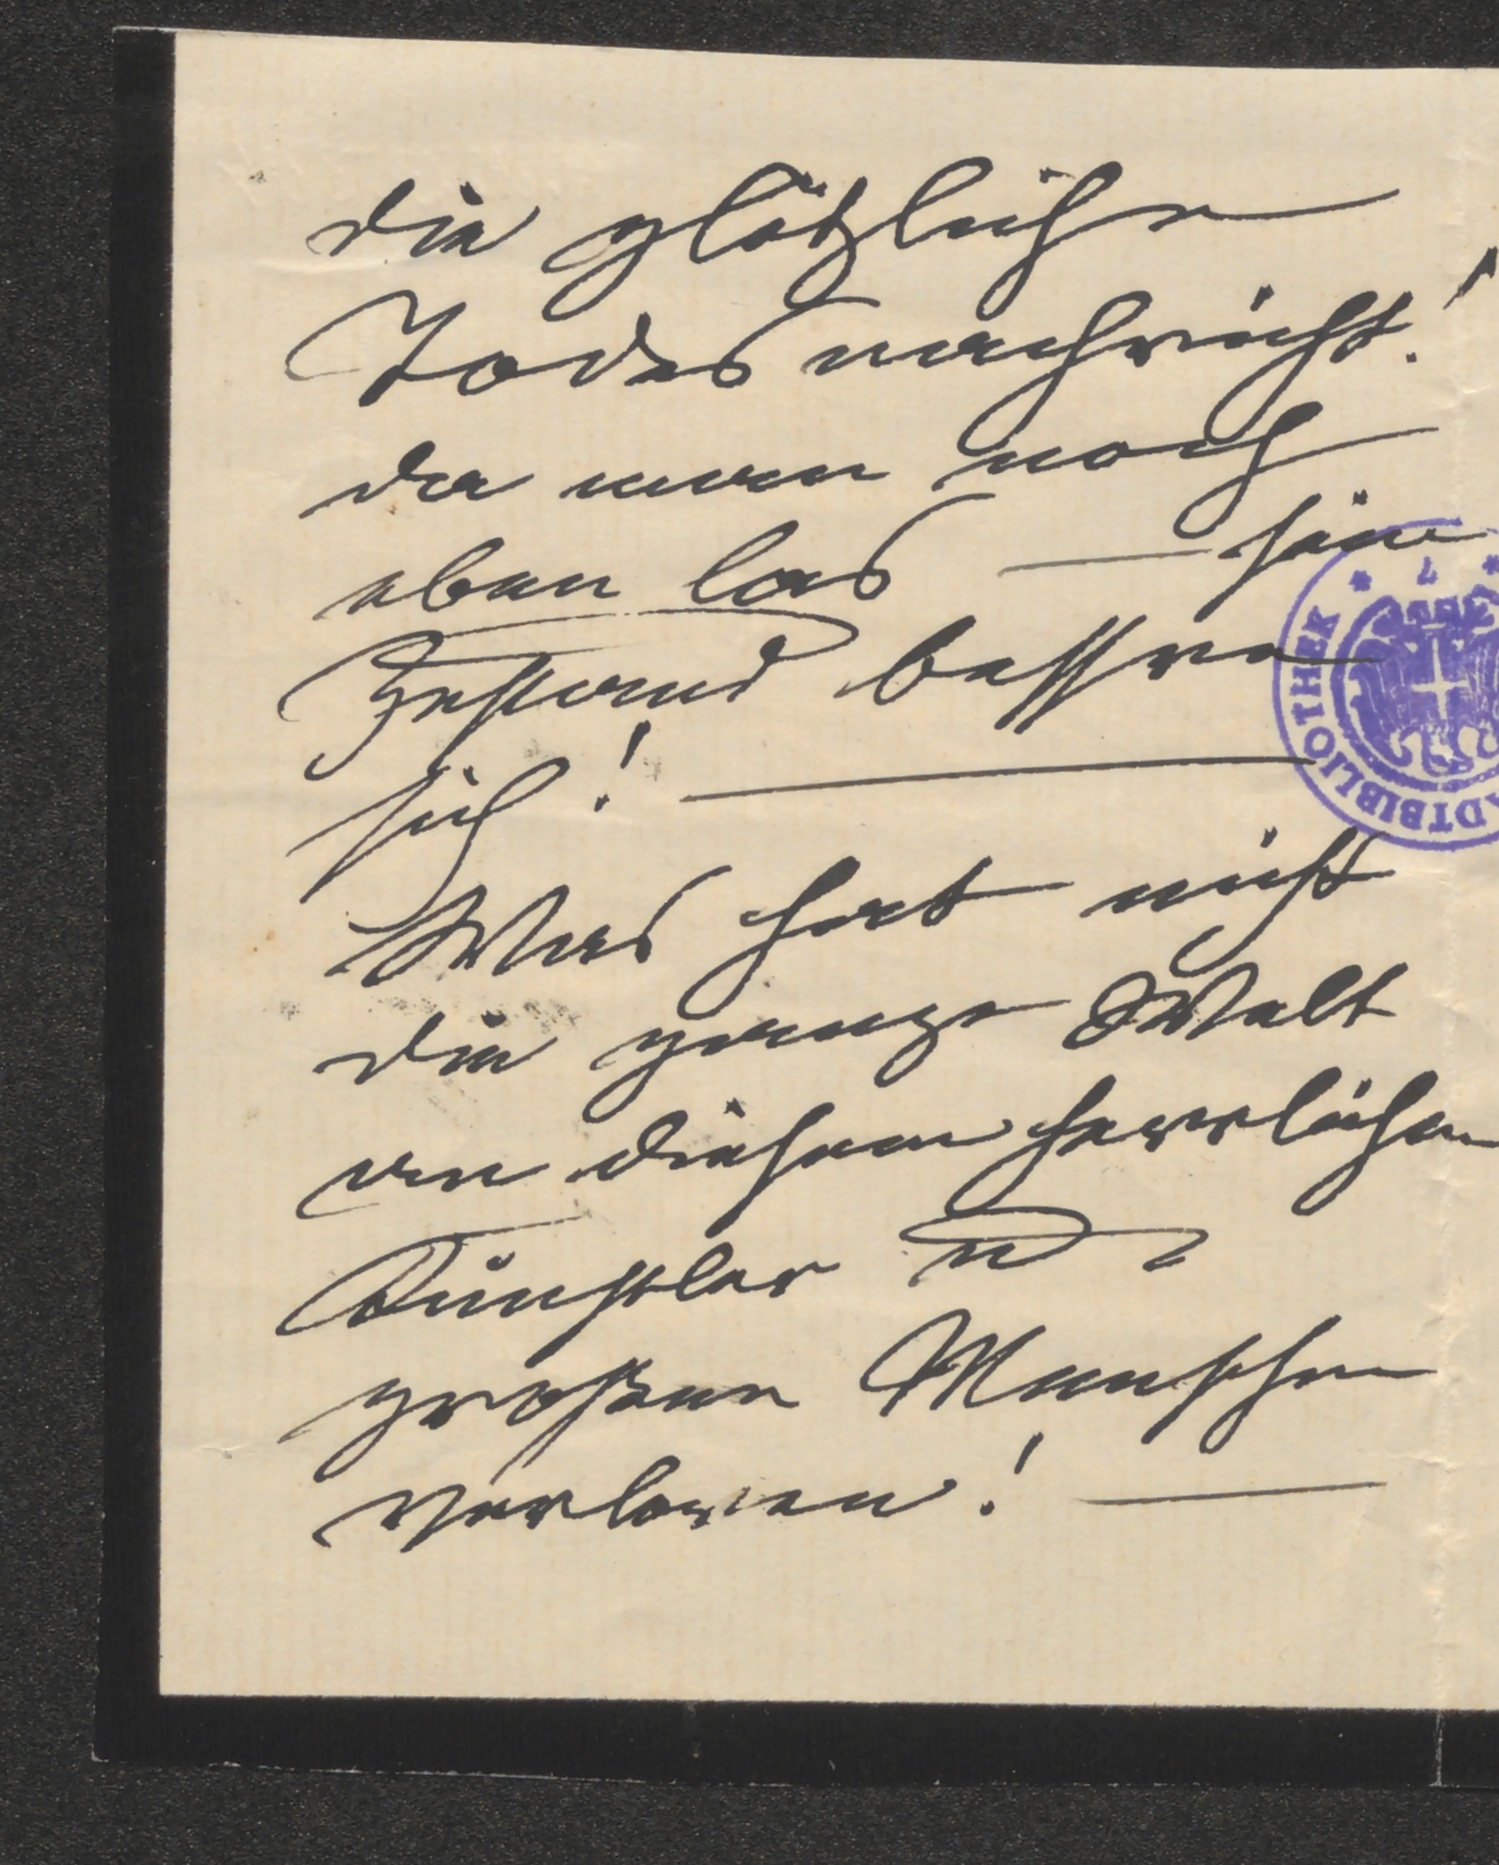 die plötzliche
Todesnachricht!
da man noch
eben las — sein
Zustand bessre
sich! —
Was hat nicht
die ganze Welt
an diesem herrlichen
Künstler u
großen Menschen
verloren! —
* 7 *
ADTBIBLIOTHEK